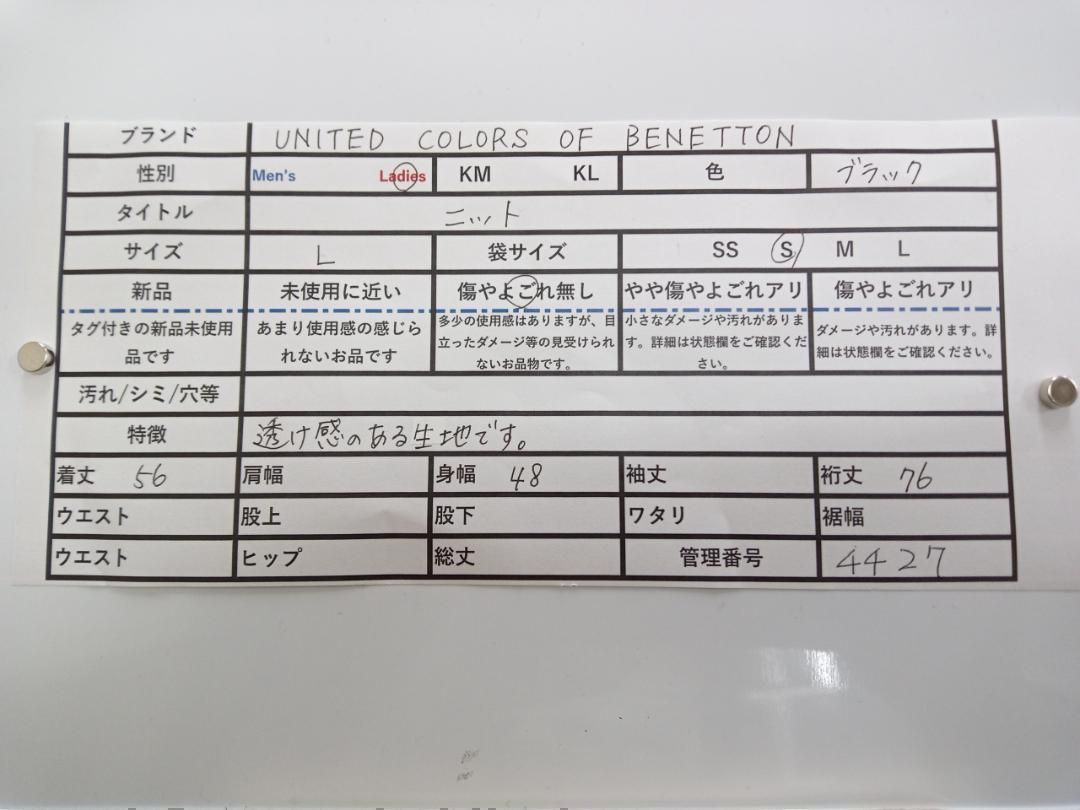 ブランド UNITED COLORS OF BENETTON
性別 Men's Ladies KM KL 色 ブラック
タイトル ニット
サイズ L 袋サイズ SS S M L
新品 未使用に近い 傷やよごれ無し やや傷やよごれアリ 傷やよごれアリ
タグ付きの新品未使用品です あまり使用感の感じられないお品です 多少の使用感はありますが、目立ったダメージ等の見受けられないお品物です。 小さなダメージや汚れがあります。詳細は状態欄をご確認ください。 ダメージや汚れがあります。詳細は状態欄をご確認ください。
汚れ/シミ/穴等
特徴 透け感のある生地です。
着丈 56 肩幅 身幅 48 袖丈 裄丈 76
ウエスト 股上 股下 ワタリ 裾幅
ウエスト ヒップ 総丈 管理番号 4427